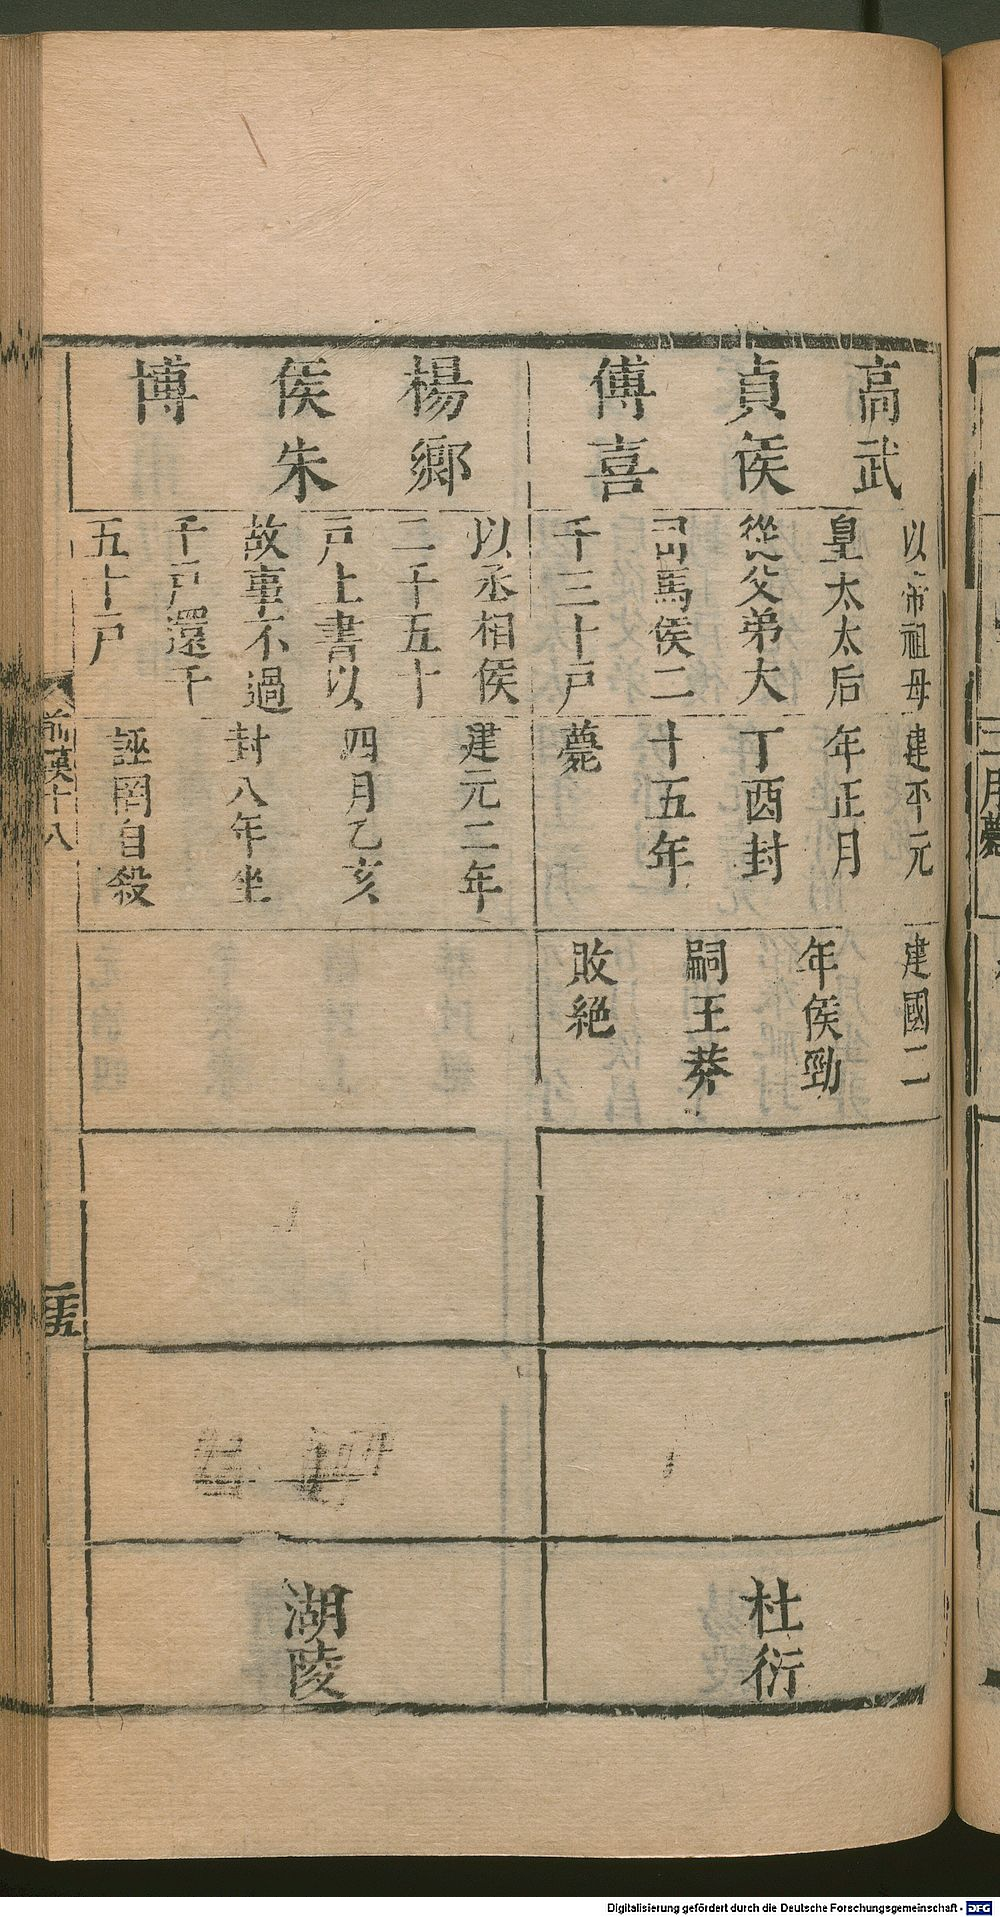 高武
貞侯
傅喜
以帝祖母
皇太太后
從父弟大
司馬侯二
千三十戸
建平元
年正月
丁酉封
十五年
薨
建國二
年侯勁
嗣王莽
敗絶
杜衍
楊鄉
侯朱
博
以丞相侯
二千五十
戸上書以
故事不過
千戸還千
五十戸
建元二年
四月乙亥
封八年坐
誣罔自殺
湖陵
前漢十八
三月薨
Digitalisierung gefördert durch die Deutsche Forschungsgemeinschaft - DFG